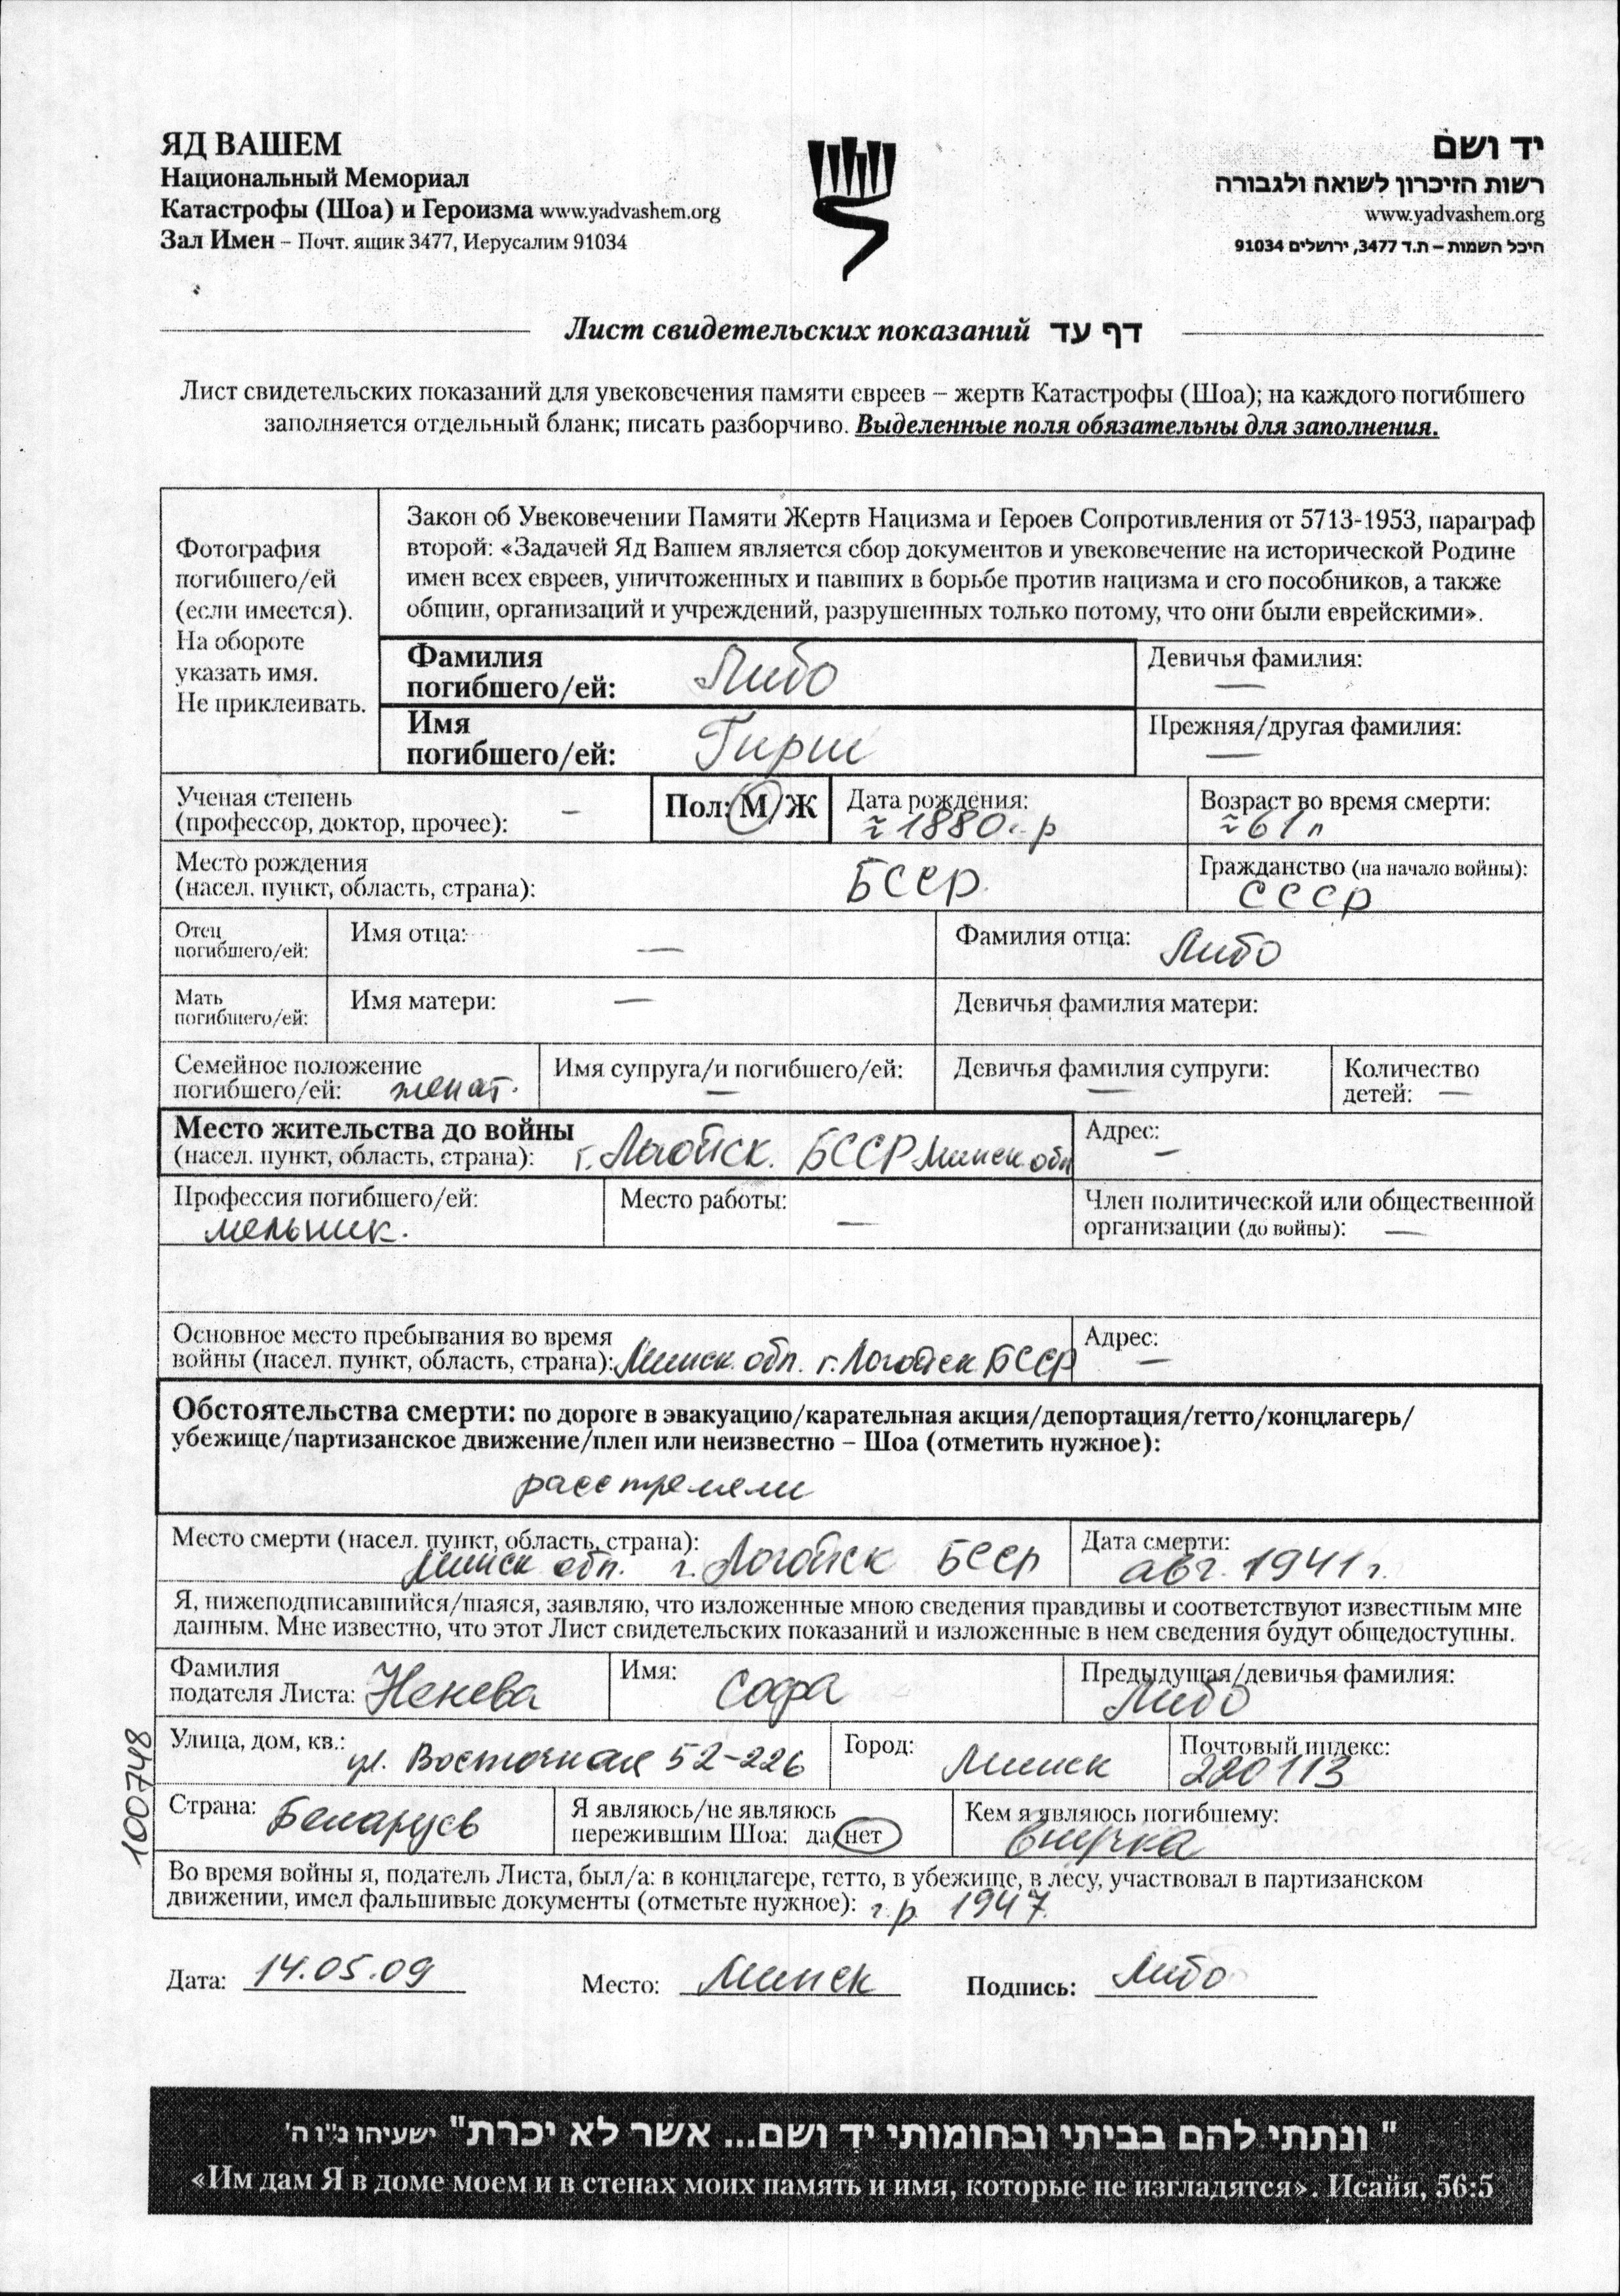 ЯД ВАШЕМ
Национальный Мемориал
Катастрофы (Шоа) и Героизма www.yadvashem.org
Зал Имен – Почт. ящик 3477, Иерусалим 91034
יד ושם
רשות הזיכרון לשואה ולגבורה
www.yadvashem.org
היכל השמות – ת.ד 3477, ירושלים 91034
Лист свидетельских показаний דף עד
Лист свидетельских показаний для увековечения памяти евреев – жертв Катастрофы (Шоа); на каждого погибшего
заполняется отдельный бланк; писать разборчиво. Выделенные поля обязательны для заполнения.
Фотография
погибшего/ей
(если имеется).
На обороте
указать имя.
Не приклеивать.
Закон об Увековечении Памяти Жертв Нацизма и Героев Сопротивления от 5713-1953, параграф
второй: «Задачей Яд Вашем является сбор документов и увековечение на исторической Родине
имен всех евреев, уничтоженных и павших в борьбе против нацизма и его пособников, а также
общин, организаций и учреждений, разрушенных только потому, что они были еврейскими».
Фамилия
погибшего/ей: Либо
Девичья фамилия:
—
Имя
погибшего/ей: Гирш
Прежняя/другая фамилия:
—
Ученая степень
(профессор, доктор, прочее): –
Пол: М/Ж
Дата рождения:
≈ 1880г.р
Возраст во время смерти:
≈ 61 л
Место рождения
(насел. пункт, область, страна): БССР
Гражданство (на начало войны):
СССР
Отец
погибшего/ей:
Имя отца: —
Фамилия отца: Либо
Мать
погибшего/ей:
Имя матери: —
Девичья фамилия матери:
Семейное положение
погибшего/ей: женат.
Имя супруга/и погибшего/ей:
—
Девичья фамилия супруги:
—
Количество
детей: —
Место жительства до войны
(насел. пункт, область, страна): г. Логойск. БССР Минск обл
Адрес:
—
Профессия погибшего/ей:
мельник.
Место работы:
—
Член политической или общественной
организации (до войны): —
Основное место пребывания во время
войны (насел. пункт, область, страна): Минск. обл. г. Логойск БССР
Адрес:
—
Обстоятельства смерти: по дороге в эвакуацию/карательная акция/депортация/гетто/концлагерь/
убежище/партизанское движение/плен или неизвестно – Шоа (отметить нужное):
расстреляли
Место смерти (насел. пункт, область, страна):
Минск обл. г. Логойск БССР
Дата смерти:
авг. 1941 г.
Я, нижеподписавшийся/шаяся, заявляю, что изложенные мною сведения правдивы и соответствуют известным мне
данным. Мне известно, что этот Лист свидетельских показаний и изложенные в нем сведения будут общедоступны.
Фамилия
подателя Листа: Ненева
Имя: Софа
Предыдущая/девичья фамилия:
Либо
Улица, дом, кв.: ул. Восточная 52-226
Город: Минск
Почтовый индекс:
220113
Страна: Беларусь
Я являюсь/не являюсь
пережившим Шоа: да/нет
Кем я являюсь погибшему:
внучка
Во время войны я, податель Листа, был/а: в концлагере, гетто, в убежище, в лесу, участвовал в партизанском
движении, имел фальшивые документы (отметьте нужное): г.р. 1947.
100748
Дата: 14.05.09 Место: Минск Подпись: Либо
" ונתתי להם בביתי ובחומותי יד ושם... אשר לא יכרת" ישעיהו נ"ו ה'
«Им дам Я в доме моем и в стенах моих память и имя, которые не изгладятся». Исайя, 56:5